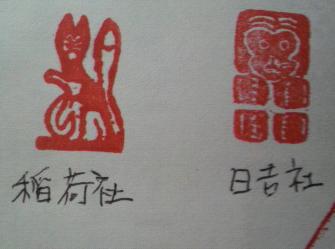 稲荷社
日吉社